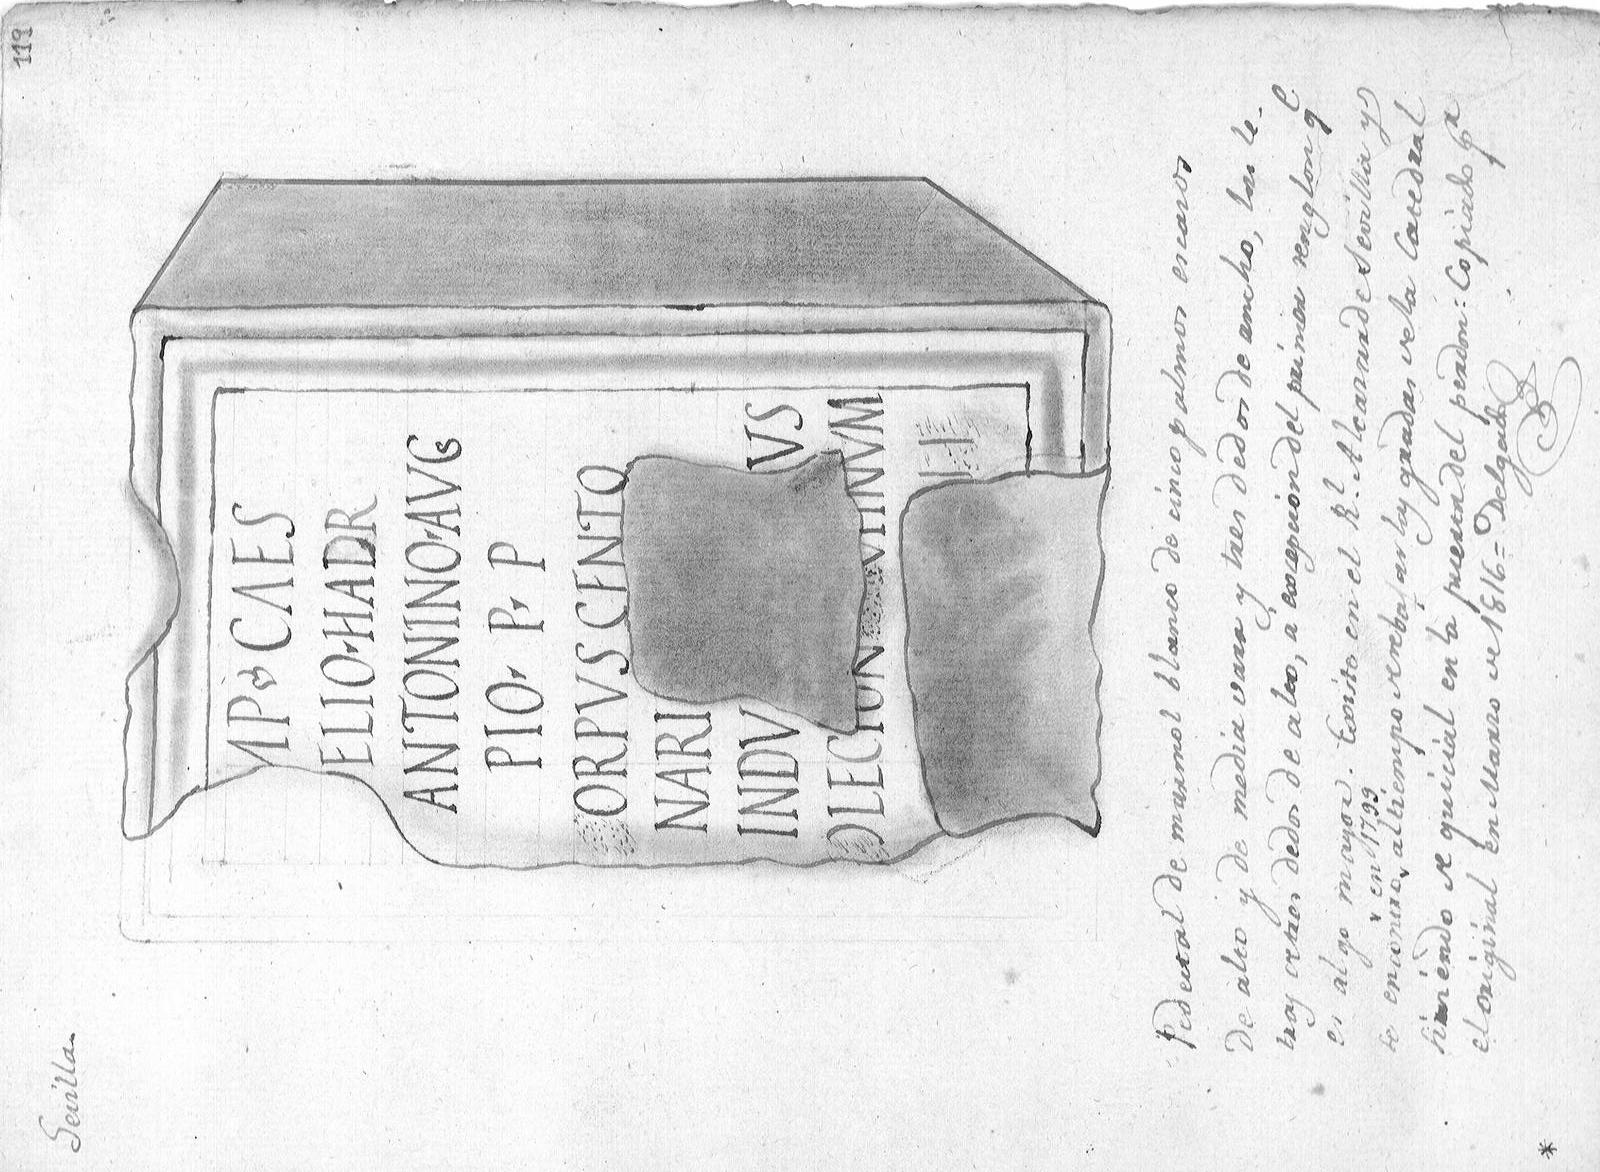 119
Sevilla
MP CAES
ELIO·HADR
ANTONINO·AVG
PIO· P· P
CORPVS CENTO
NARI
INDV VS
COLLECTION VINVM
Pedestal de marmol blanco de cinco palmos escasos
de alto y de media vara y tres dedos de ancho, las le-
tras de tres dedos de alto, a excepcion del primer renglon q.e
es algo mayor. Exsito en el R.l Alcazar de Sevilla y
en 1799
se encontro, al tiempo de las gradas de la Catedral
sirviendo de quicial en la puerta del perdon: Copiado p.a
el original en Marzo de 1816= Delgado
*